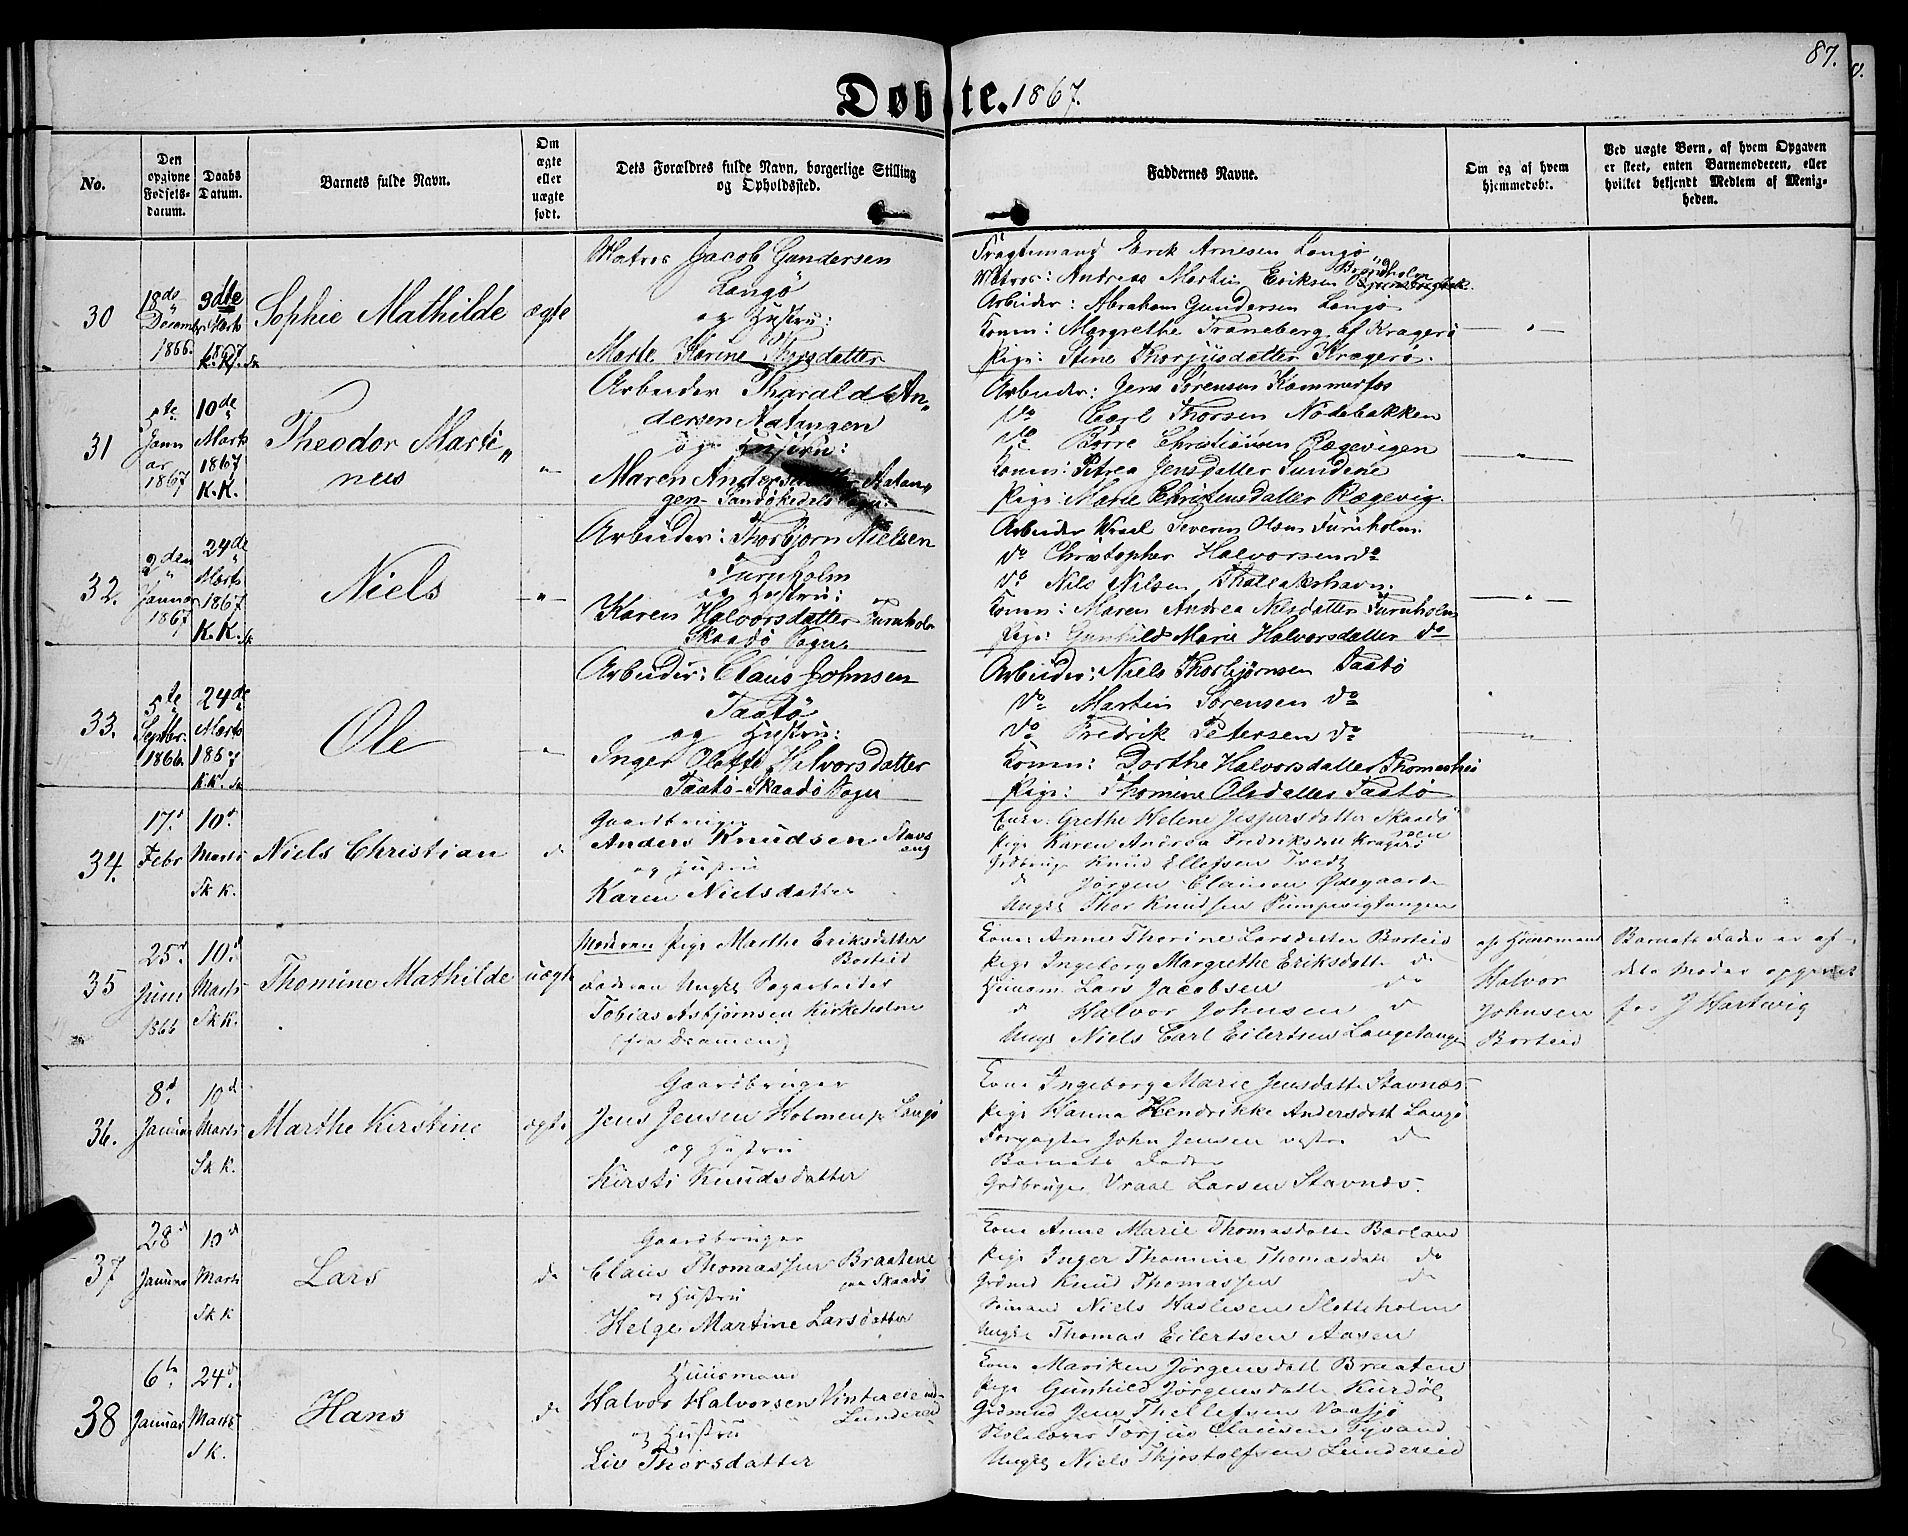 87.
Døbte. 1867.
No.
Den opgivne Fødsels-datum.
Daabs Datum.
Barnets fulde Navn.
Om ægte eller uægte født.
Dets Forældres fulde Navn, borgerlige Stilling og Opholdssted.
Faddernes Navne.
Om og af hvem hjemmedøbt.
Ved uægte Børn, af hvem Opgaven er skeet, enten Barnemoderen, eller hvilket bekjendt Medlem af Menigheden.
30
18de Decemb 1866.
3die Marts 1867 K.K. Sk
Sophie Mathilde
ægte
Matros Jacob Gundersen
Langö
og Hustru:
Marte Karine Thorsdatter
Fragtemand Erik Arnesen Langö
Matros: Andreas Martin Eriksen
Arbeider: Abraham Gundersen Langö
Konen: Margrethe Traneberg af Kragerö
Pige: Stine Thorjusdatter Kragerö.
31
5te Januar 1867
10de Marts 1867 K.K.
Theodor Marti„
nius
"
Arbeider Tharald An„
dersen Aatangen
og Hustru:
Maren Andersdatter Aatan„
gen Sandökedals Sogn
Arbeider: Jens Sörensen Kammerfos
do Carl Thorsen Nodebakken
do Börre Christiansen Rægevigen
Konen: Petrea Jensdatter Lundene
Pige: Marie Christensdatter Rægevig
32.
2den Januar 1867
24de Marts 1867 K.K. Sk
Niels
"
Arbeider: Thorbjørn Nielsen
Furuholm
og Hustru:
Karen Halvorsdatter Furuholm
Skaadö Sogn
Arbeider Wrael Severin Olsen Furuholm
do Christopher Halvorsen do
do Nils Nilsen Thaleakshavn
Konen: Maren Andrea Nilsdatter Furuholm
Pige: Gunhild Marie Halvorsdatter do
33.
5te Septbr. 1866
24de Marts 1867 K.K. Sk
Ole
"
Arbeider: Claus Johnsen
Taatö
og Hustru:
Inger Olette Halvorsdatter
Taatö-Skaadö Sogn
Arbeider: Niels Thorbjørnsen Taatö
do Martin Sörensen do
do Fredrik Petersen do
Konen: Dorthe Halvorsdatter
Pige: Thomine Olsdatter Taatö
34.
17d Febr
10d Marts Sk K.
Niels Christian
d
Gaardbruger
Anders Knudsen Stavs
eng
og Hustru
Karen Nielsdatter
Grethe Helene Jespersdatter Skaadö
Pige Karen Andrea Fredriksdatt Kragerö
Grdbrug Knud Ellefsen Tvedt
d Jörgen Clausen Ödegaard
Ungk Thor Knudsen Pumpevigtangen
35
25d Juni 1866
10d Marts Sk K.
Thomine Mathilde
uægte
Moderen Pige Marthe Eriksdatter
Borteid
Faderen Ungk Sagarbeider
Tobias Asbjørnsen Kirkeholm
(fra Dramen)
Kone Anne Thorine Larsdatter Borteid
Pige Ingeborg Margrethe Eriksdatt do
Huusm Lars Jacobsen do
d Halvor Johnsen d
Ungk Niels Carl Eilertsen Langetangen
af Huusmand
Halvor
Johnsen
Borteid
Barnets Fader er af
dets Moder opgivet
for J Hartwig
36.
8d Januar
10d Marts Sk K.
Marthe Kirstine
ægte
Gaardbruger
Jens Jensen Holmen p Langö
og Hustru
Kirsti Knudsdatter
Kone Ingeborg Marie Jensdatt Stavnæs
Pige Hanna Hendrikke Andersdatt Langö
Forpagter John Jensen vestre do
Barnets Fader
Grdbruger Vraal Larsen Stavnæs.
37
28d Januar
10d Marts Sk K
Lars
do
Gaardbruger
Claus Thomassen Braatene
paa Skaadö
og Hustru
Helge Martine Larsdatter
Kone Anne Marie Thomasdatt Borland
Pige Inger Thomine Thomasdatt do
Grdmd Knud Thomassen do
Sömand Niels Haslesen Slotteholm
Ungk Thomas Eilertsen Aasen
38
6te Januar
24d Marts S K.
Hans
do
Huusmand
Halvor Halvorsen Vintereie
Lundereid
og Hustru
Liv Thorsdatter
Kone Mariken Jörgensdatt Braaten
Pige Gunhild Jörgensdatt Kurdöl
Grdmd Jens Thellefsen Vaasjö
Skolelærer Torjus Clausen Tyvand
Ungk Niels Thjostolfsen Lundereid